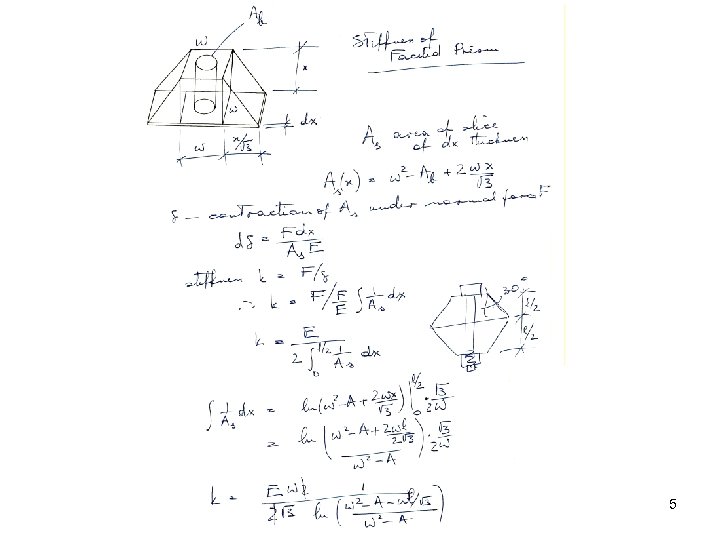 A_b
w
Stiffness of
Faceted Prism
x
w
dx
w x/√3
A_s area of slice
of dx thickness
A_s(x) = w² - A_b + 2 wx/√3
δ -- contraction of A_s under normal force F
dδ = Fdx / A_s E
stiffness k = F/δ
∴ k = F / F/E ∫ 1/A_s dx
30°
l/2
l/2
k = E / 2 ∫₀^{l/2} 1/A_s dx
∫ 1/A_s dx = ln(w² - A + 2wx/√3) |₀^{l/2} · √3/2w
= ln ( w² - A + 2wl/2√3 / w² - A ) · √3/2w
k = E w / √3 1 / ln ( w² - A - wl/√3 / w² - A )
5